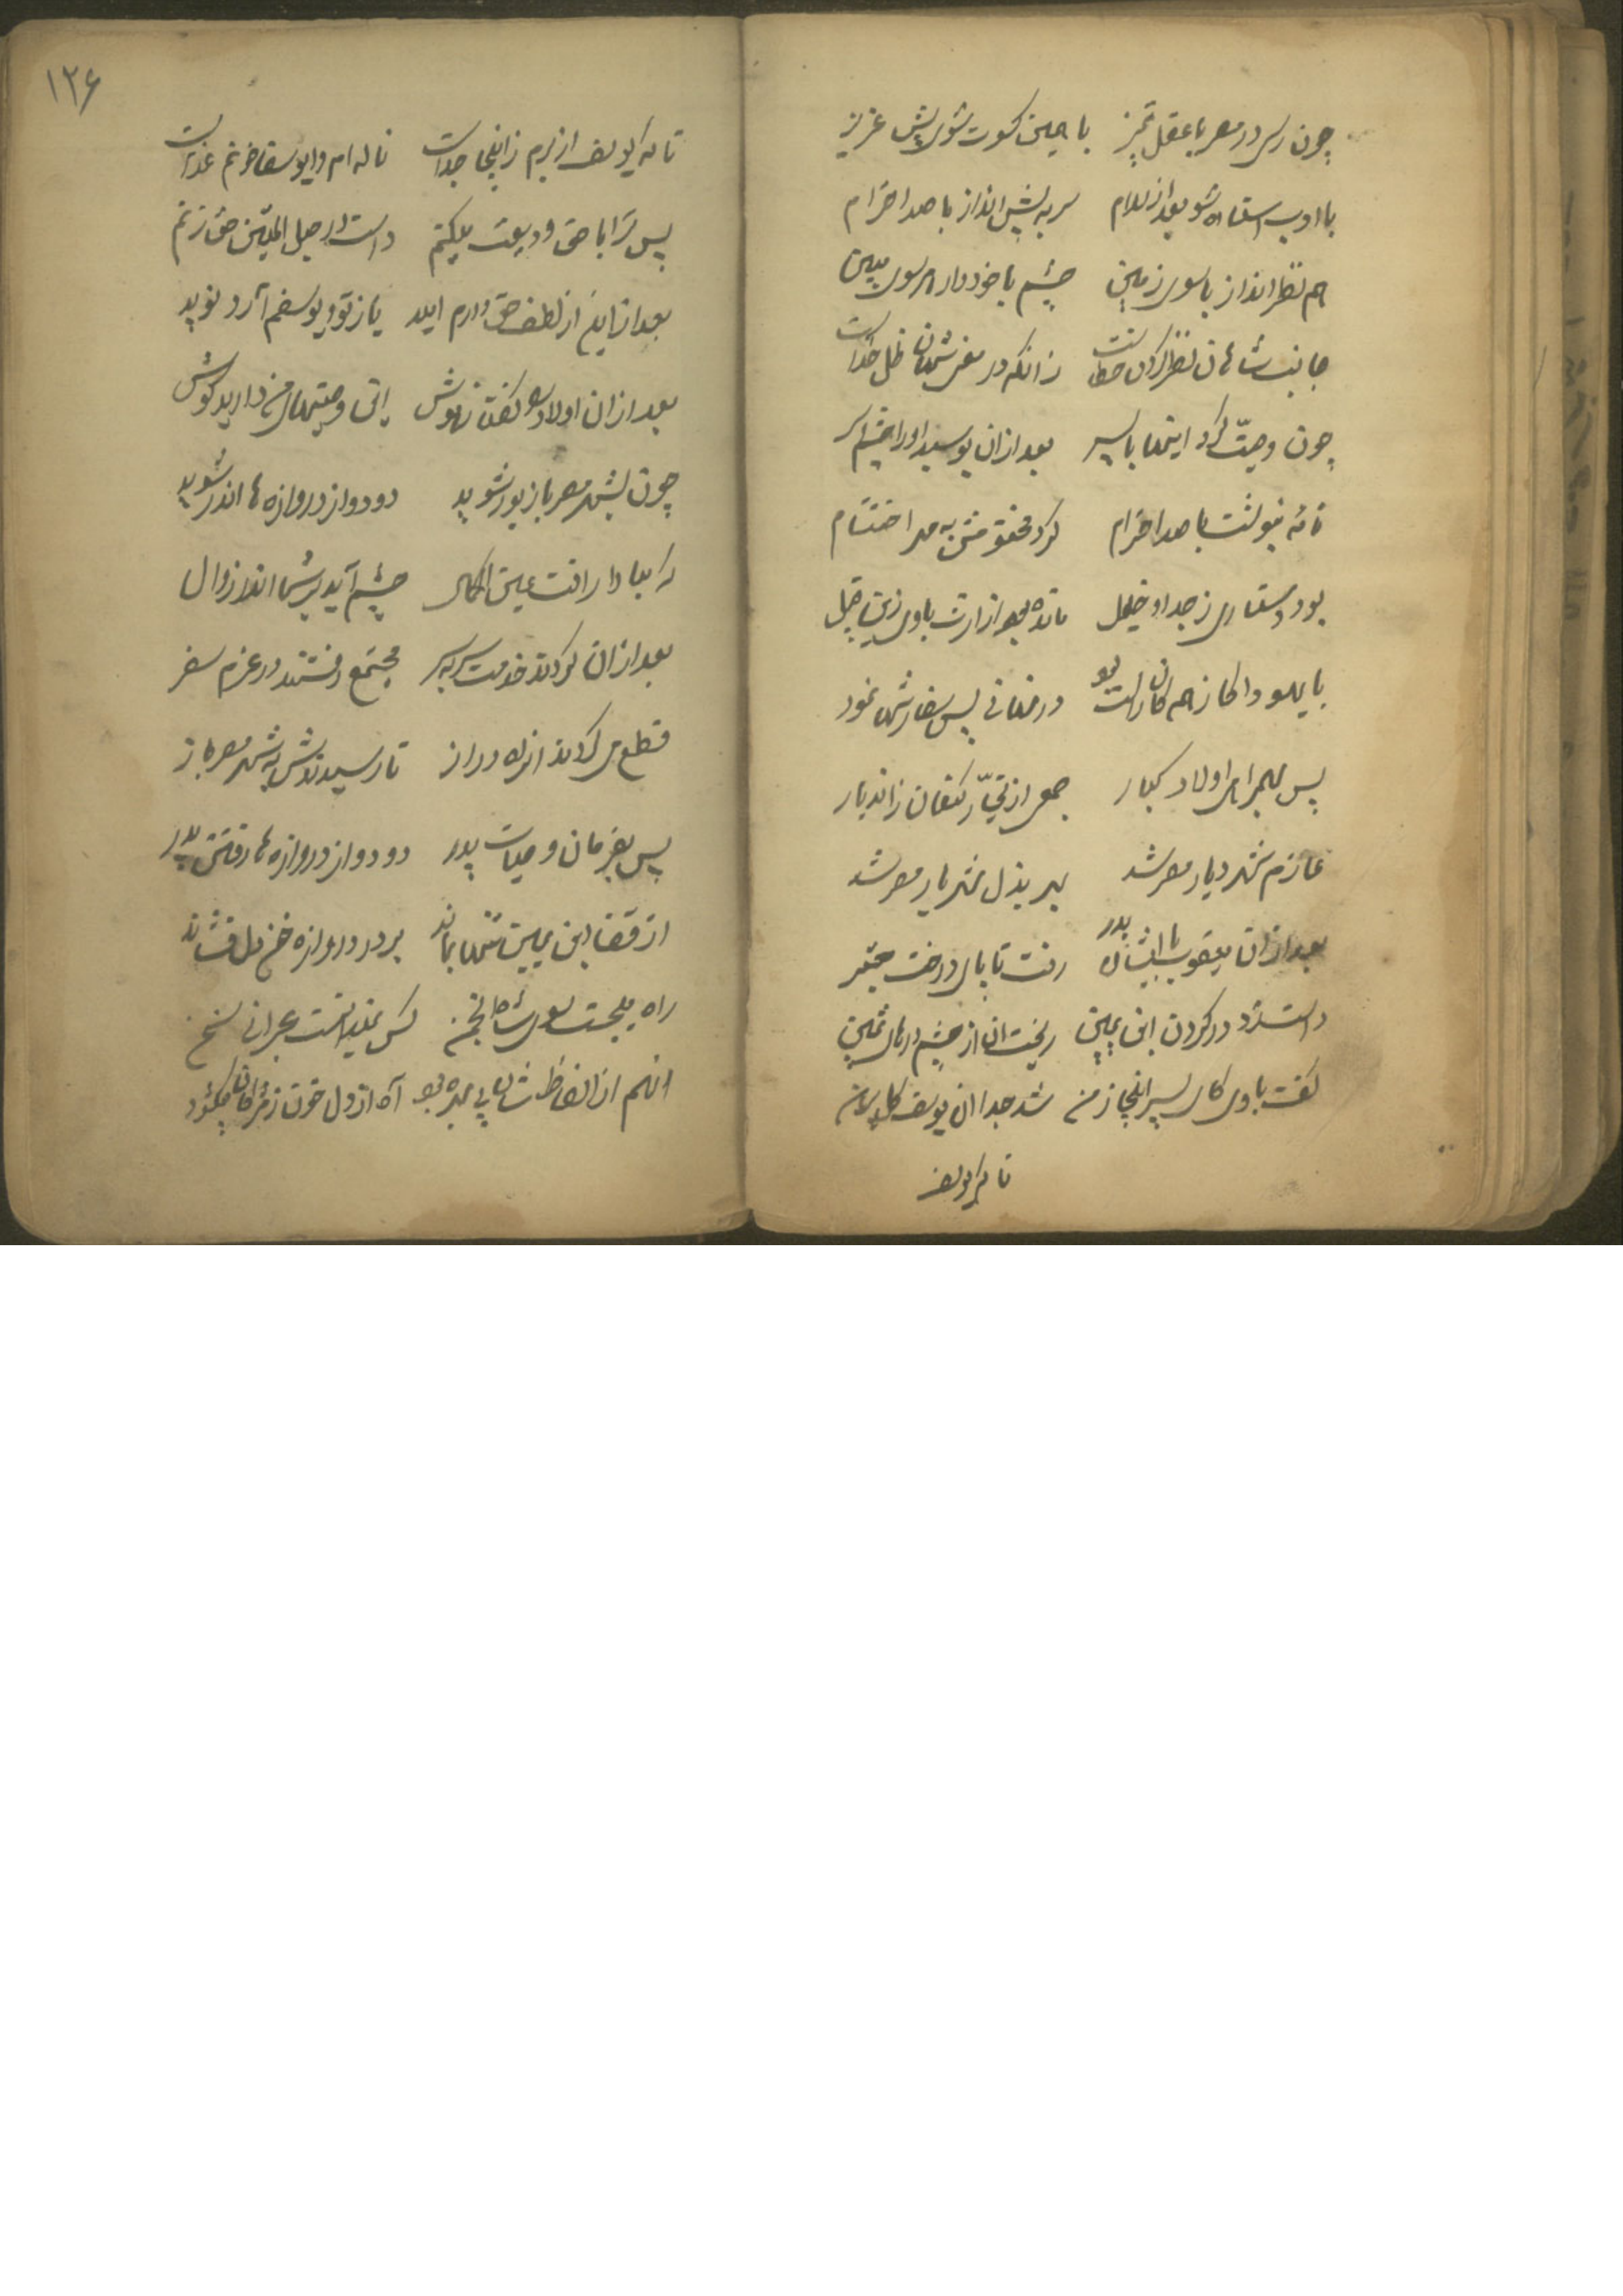 چون رسی در مصر با عقل و تمیز با همین کسوت شوی پیش عزیز
با ادب استاده شو بعد از سلام سر به پیش انداز با صد احترام
هم نظر انداز با سوی زمین چشم با خود دار هر سوی مبین
جانب شاهان نظر کردن خطاست زانکه در معنی شهان ظل خداست
چون وصیت کرد اینها با پسر بعد از آن بوسید او را چشم و سر
نامه بنوشت با صد احترام کرد مختومش به مهر اختتام
بود دستاری ز جد او خلیل مانده بود از ارث باوی زین قبیل
با یهودا کاز هم کان راست بود در نهانی پس سفارشها نمود
پس به همراهی اولاد کبار جمعی از تجار کنعان زاندیار
عازم شهر و دیار مصر شد بهر بذل شهریار مصر شد
بعد از آن یعقوب با ایشان پدر رفت تا پای درخت
دست زد در گردن ابن یمین ریخت آن از چشم درهای ثمین
گفت با وی کای پسر اینجا ز من شد جدا آن یوسف گل پیرهن
تا که یوسف
۱۲۶
تا که یوسف از برم زاینجا جداست ناله‌ام وا یوسفا خونم غذاست
پس ترا با حق ودیعت میکنم دست در حبل المتین حق زنم
بعد از این از لطف حق دارم امید باز تو و یوسفم آرد نوید
بعد از آن اولاد را گفتا بهوش این وصیتهای من دارید گوش
چون بشهر مصر باز بور شوید دو دو از دروازه‌ها اندر شوید
که مبادا رافت عین الکمال چشم آید بر شما اندر زوال
بعد از آن کردند خدمت سر بسر مجتمع رفتند در عزم سفر
قطع می‌کردند از راه دراز تا رسیدندش به شهر مصر باز
پس بفرمان وصیات پدر دو دو از دروازه‌ها رفتند
از قفا ابن یمین تنها بماند بر در دروازه خون دل فشاند
راه میجست سوی شاه انجمن کس نمیدانست عبرانی سخن
آنهم از الفاظ شان بی بهره بود آه از دل خون ز مژگان میگشود